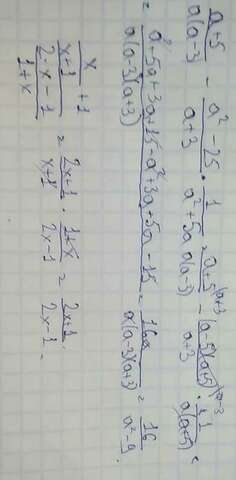 a+5/a(a-3) - a²-25/a+3 · 1/a²+5a = a+5/a(a-3) (a+3 - (a-5)(a+5)/a+3 · 1/a(a+5) (a-3 =
= a²+5a+3a+15-a²+3a+5a-15/a(a-3)(a+3) = 16a/a(a-3)(a+3) = 16/a²-9.
x/x+1 + 1 / 2-x-1/1+x = 2x+1/x+1 · 1+x/2x-1 = 2x+1/2x-1.